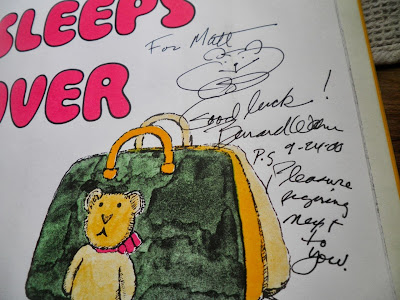 SLEEPS
OVER
For Matt
Good luck!
Bernard Waber
P.S 9-24-00
Pleasure
signing
next
to
you.